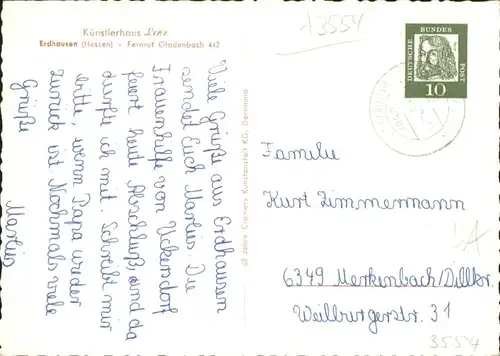 Künstlerhaus Lenz
Erdhausen (Hessen) - Fernruf Gladenbach 442
Viele Grüße aus Erdhausen
sendet Euch Marlies. Die
Frauenhilfe von Uckersdorf
feiert heute Abschluß, und da
durfte ich mit. Schreibt mir
bitte, wenn Papa wieder
zurück ist. Nochmals viele
Grüße
Marlies
60 Jahre Cramers Kunstanstalt KG, Dortmund
13554
DEUTSCHE BUNDESPOST
10
Familie
Kurt Zimmermann
6349 Merkenbach/Dillkr.
Weilburgerstr. 31
3554